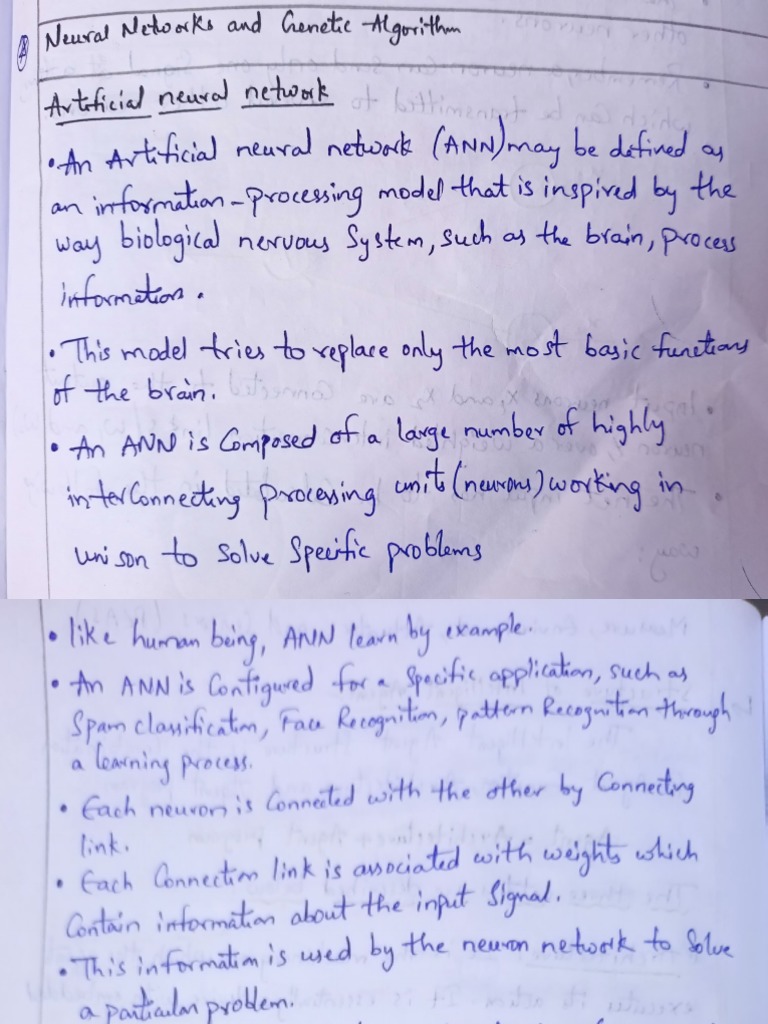 Neural Networks and Genetic Algorithm
Artificial neural network
• An Artificial neural network (ANN) may be defined as
an information-processing model that is inspired by the
way biological nervous System, such as the brain, process
information.
• This model tries to replace only the most basic functions
of the brain.
• An ANN is Composed of a large number of highly
interConnecting processing units (neurons) working in
unison to Solve Specific problems
• like human being, ANN learn by example.
• An ANN is Configured for a Specific application, such as
Spam classification, Face Recognition, pattern Recognition through
a learning process.
• Each neuron is Connected with the other by Connecting
link.
• Each Connection link is associated with weights which
Contain information about the input Signal.
• This information is used by the neuron network to Solve
a particular problem.